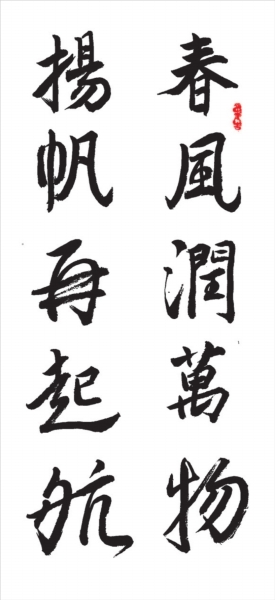 春風潤萬物
揚帆再起航